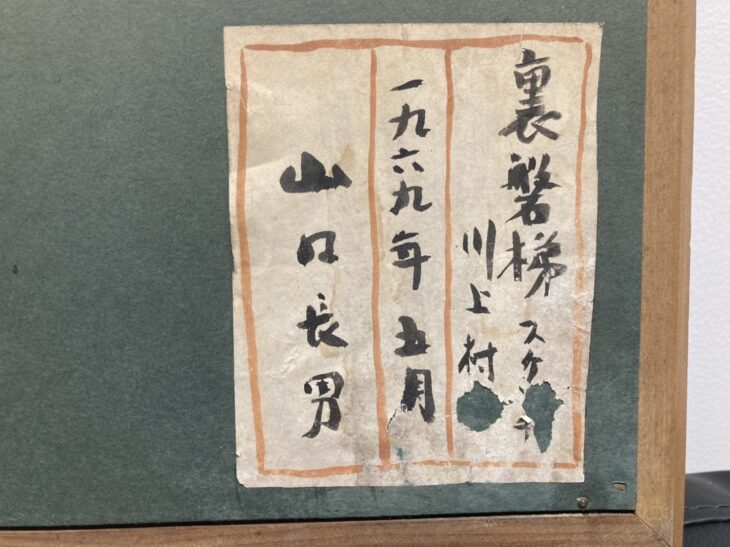 裏磐梯 スケッチ
川上村
一九六九年 五月
山口長男